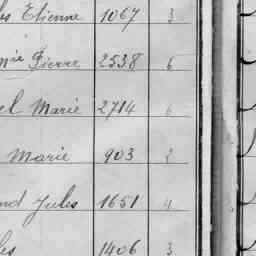 Etienne 1067 3
Pierre 2538 6
el Marie 2714 6
Marie 903 2
nd Jules 1651 4
les 1406 3